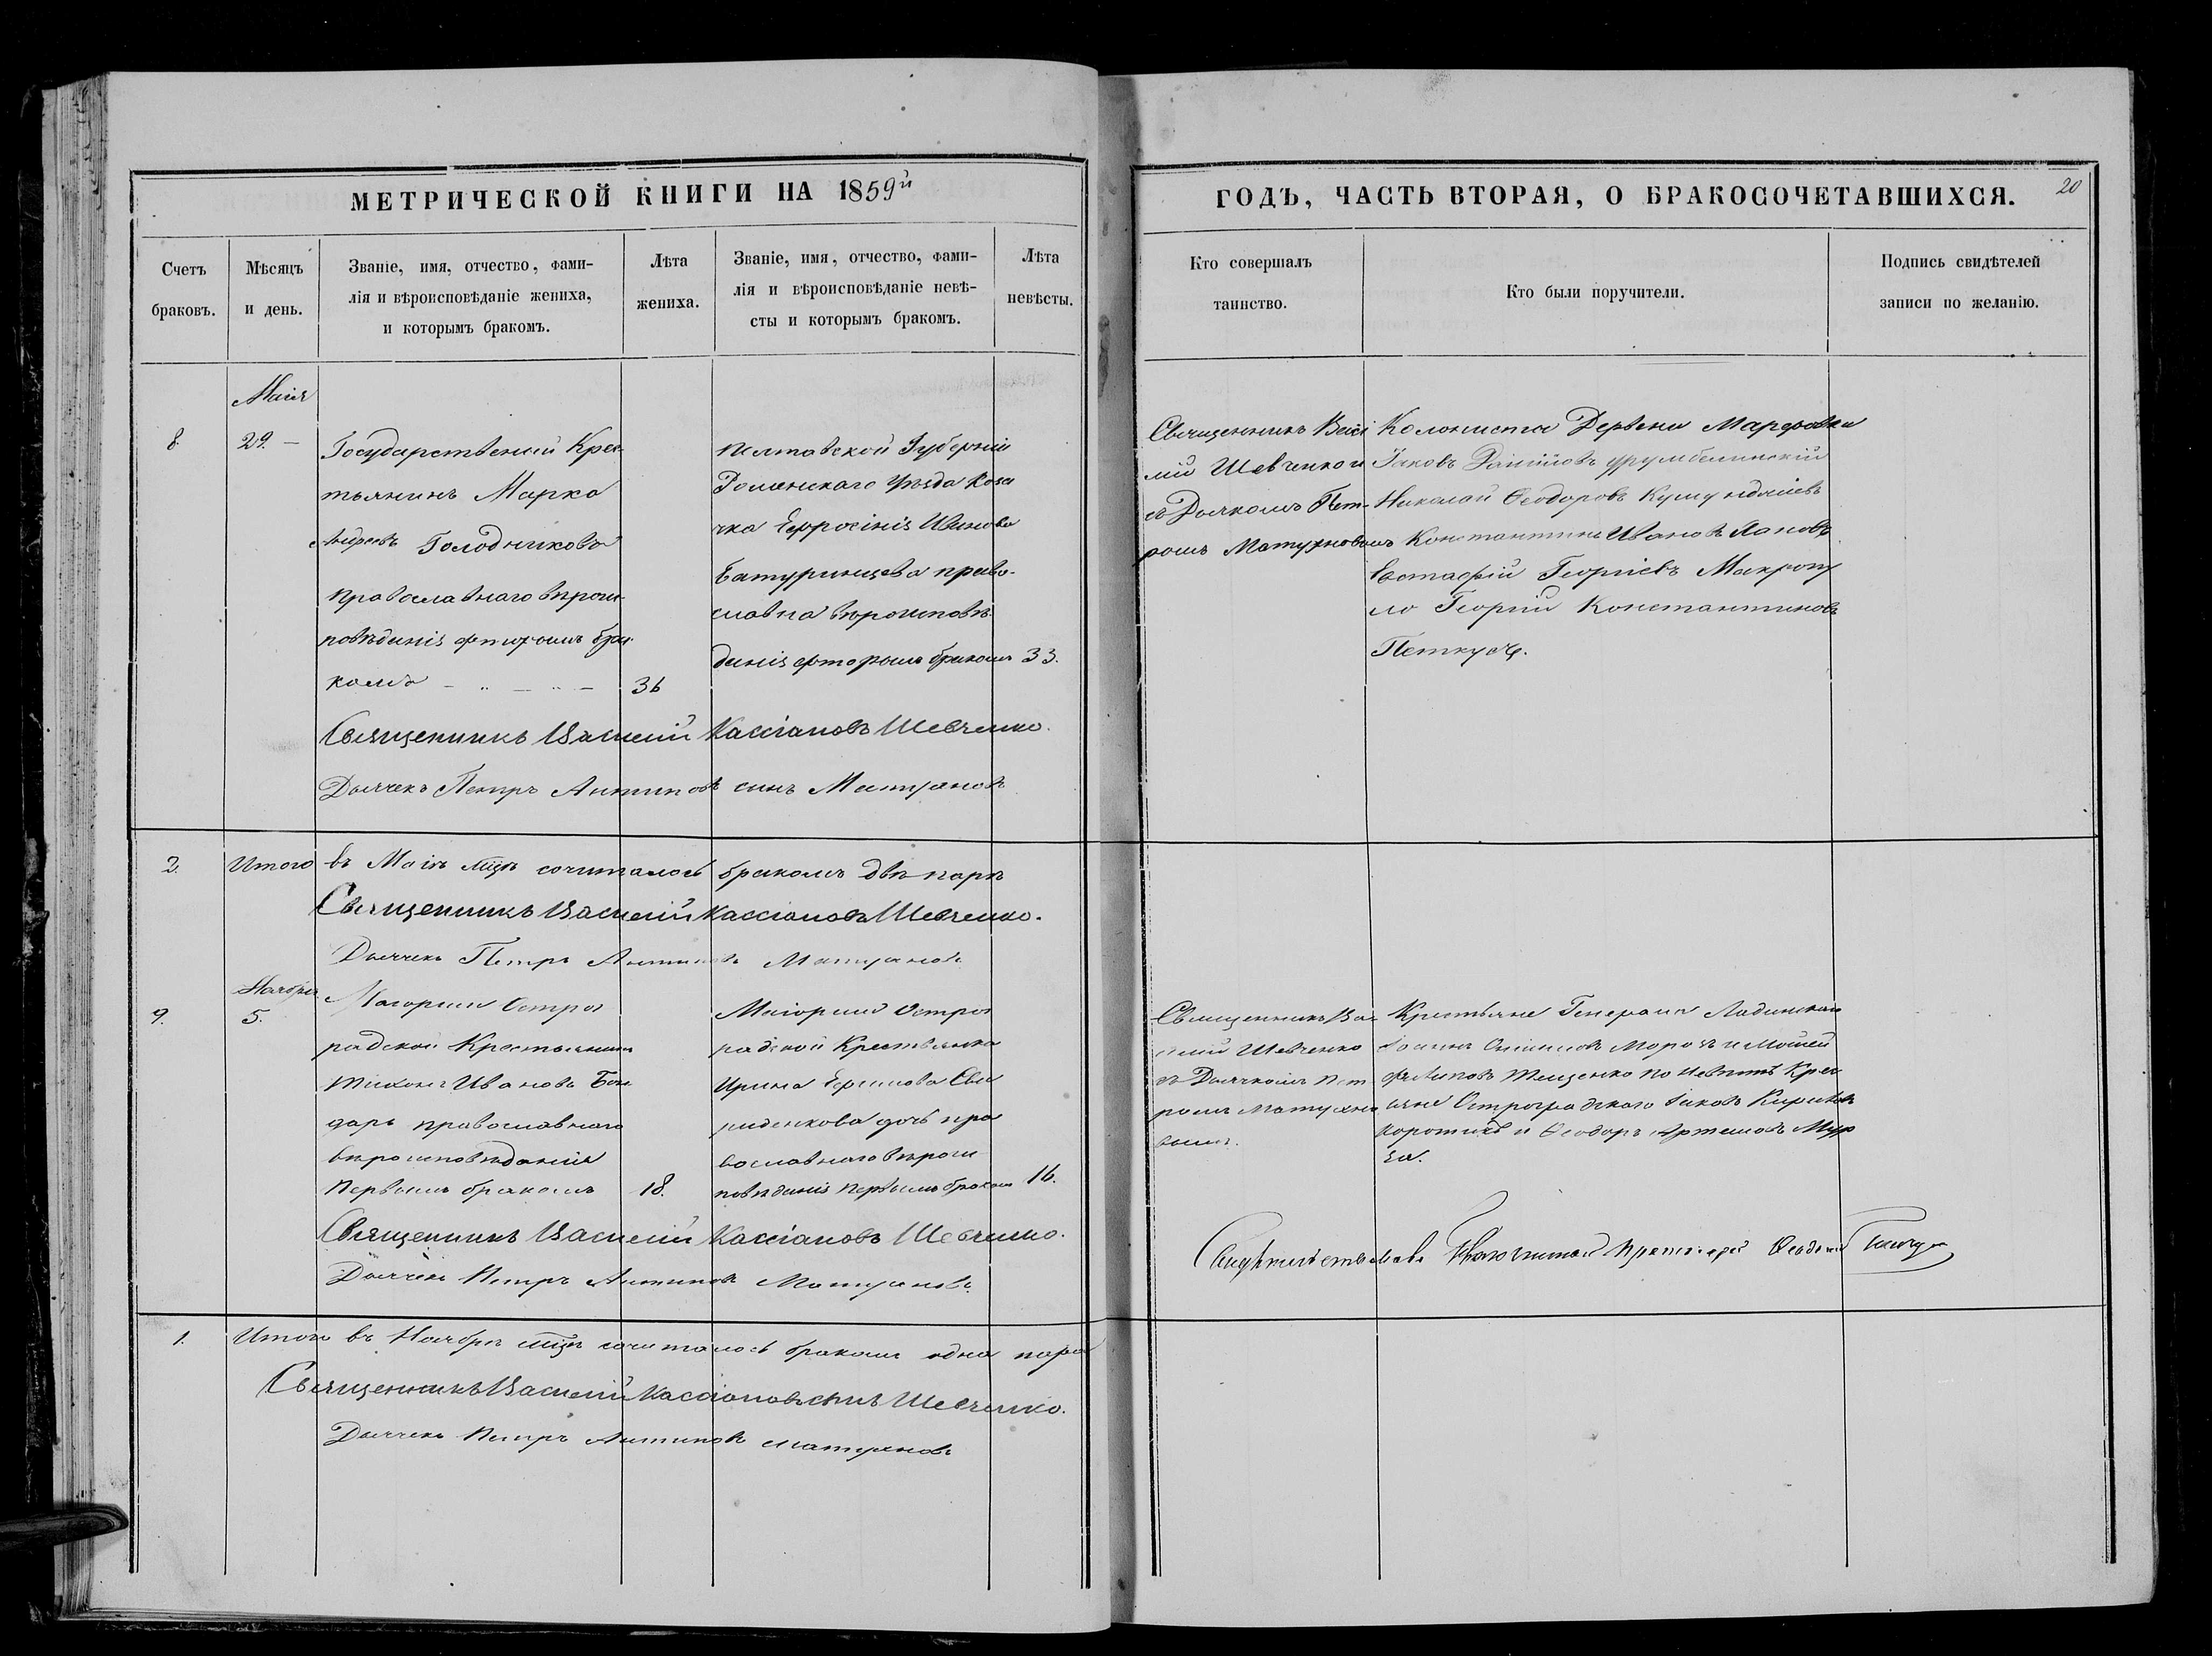 МЕТРИЧЕСКОЙ КНИГИ НА 1859й
ГОДЪ, ЧАСТЬ ВТОРАЯ, О БРАКОСОЧЕТАВШИХСЯ.
20
Счетъ
браковъ.
Мѣсяцъ
и день.
Званіе, имя, отчество, фами-
лія и вѣроисповѣданіе жениха,
и которымъ бракомъ.
Лѣта
жениха.
Званіе, имя, отчество, фами-
лія и вѣроисповѣданіе невѣ-
сты и которымъ бракомъ.
Лѣта
невѣсты.
Кто совершалъ
таинство.
Кто были поручители.
Подпись свидѣтелей
записи по желанію.
8
Маія
29. —
Государственій Крес-
тьянинъ Марко
Андреевъ Голодниковъ
православнаго вѣроис-
повѣданія фторымъ бра-
комъ
36
Полтавской Губерніи
Роменскаго Уѣзда Коза
чка Ефросінія Иванова
Батуринцева право-
славна вѣроисповѣ-
данія фторымъ бракомъ
33.
Священникъ Васи
лій Шевченко и
съ Дьякомъ Пет-
ромъ Матухновымъ
Колонисты Деревни Марфовки
Іаковъ
Николай Ѳеодоровъ
Константинъ Ивановъ Паповъ
Евстафій Георгіевъ
Георгій Константиновъ
Священникъ Василій Кассіановъ Шевченко.
Дьячекъ Петръ Антиповъ сынъ Матухновъ
2. Итого въ Маіѣ мцѣ сочиталось бракомъ двѣ парѣ
Священникъ Василій Кассіановъ Шевченко.
Дьячекъ Петръ Антиповъ Матухновъ
9.
Ноября
5.
Маіорши Остро
радской Крестьянинъ
Тихонъ Ивановъ Бон
дарь православнаго
вѣроисповѣданія
первымъ бракомъ
18.
Маіорши Остро
радской Крестьянка
Ирина Ефимова Сви
риденкова дочь пра
вославнаго вѣроис
повѣданія первымъ бракомъ
16.
Священникъ Ва-
силій Шевченко
съ Дьячкомъ Пет
ромъ Матухно
вымъ.
Крестьяне Генерала Ладинскаго
Морозъ и Мойсей
Тещенко по невѣстѣ Крес
яне Остроградскаго Іаковъ
и Ѳеодоръ Артемовъ
Священникъ Василій Кассіановъ Шевченко.
Дьячекъ Петръ Антиповъ Матухновъ.
Свидѣтельствовалъ Благочинный Протоіерей
1. Итого въ Ноябрѣ мцѣ сочиталось бракомъ одна пара
Священникъ Василій Кассіановъ сынъ Шевченко.
Дьячекъ Петръ Антиповъ Матухновъ